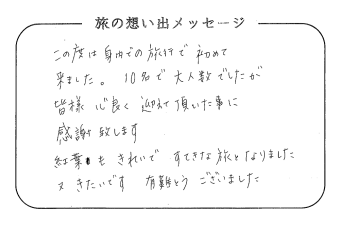 旅の想い出メッセージ
この度は身内での旅行で初めて
来ました。10名で大人数でしたが
皆様心良く迎えて頂いた事に
感謝致します
紅葉もきれいですてきな旅となりました
又きたいです 有難とうございました